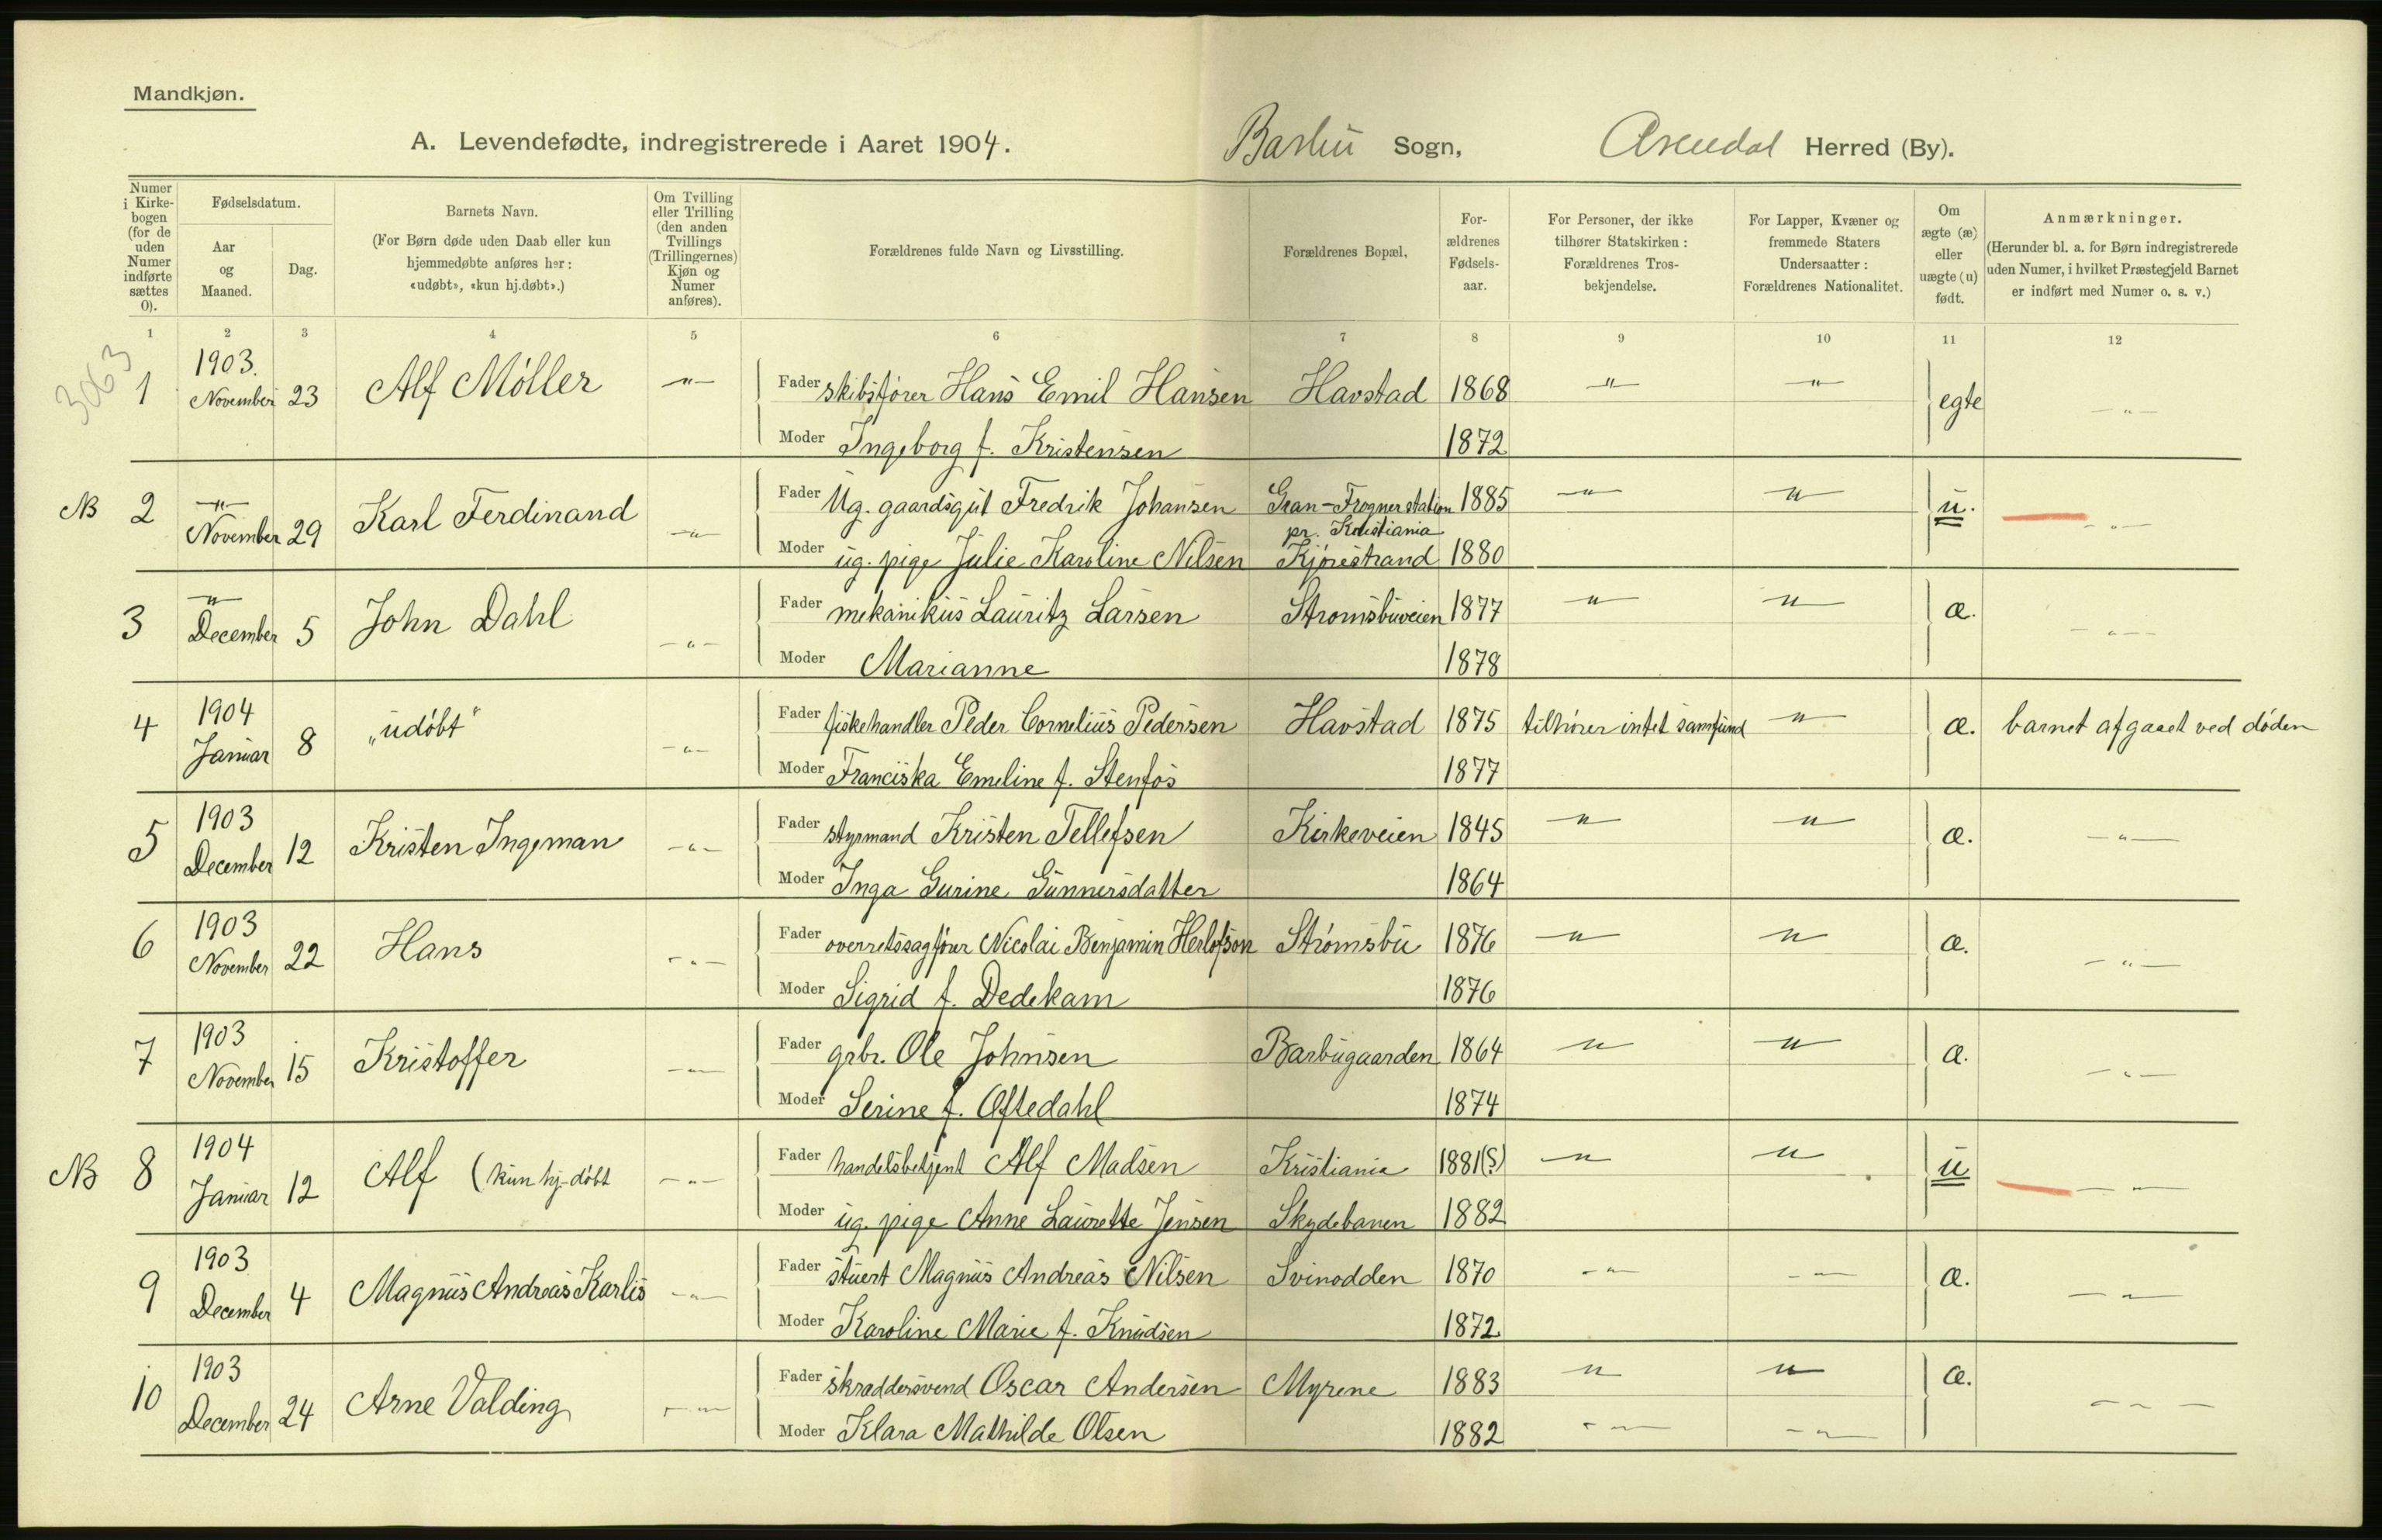 Mandkjøn.
A. Levendefødte, indregistrerede i Aaret 1904. Barbu Sogn, Arendal Herred (By).
Numer i Kirkebogen (for de uden Numer indførte sættes 0).
Fødselsdatum.
Aar og Maaned.
Dag.
Barnets Navn.
(For Børn døde uden Daab eller kun hjemmedøbte anføres her: «udøbt», «kun hj.døbt».)
Om Tvilling eller Trilling (den anden Tvillings (Trillingernes) Kjøn og Numer anføres).
Forældrenes fulde Navn og Livsstilling.
Forældrenes Bopæl,
Forældrenes Fødselsaar.
For Personer, der ikke tilhører Statskirken: Forældrenes Trosbekjendelse.
For Lapper, Kvæner og fremmede Staters Undersaatter: Forældrenes Nationalitet.
Om ægte (æ) eller uægte (u) født.
Anmærkninger.
(Herunder bl. a. for Børn indregistrerede uden Numer, i hvilket Præstegjeld Barnet er indført med Numer o. s. v.)
1 2 3 4 5 6 7 8 9 10 11 12
3063
1 1903. November 23 Alf Møller —"— Fader skibsfører Hans Emil Hansen Havstad 1868 —"— —"— egte —"—
Moder Ingeborg f. Kristensen 1872
NB 2 —"— November 29 Karl Ferdinand —"— Fader Ug. gaardsgut Fredrik Johansen Gran-Frogner station pr. Kristiania 1885 —"— —"— u. —"—
Moder ug. pige Julie Karoline Nilsen Kjørestrand 1880
3 —"— December 5 John Dahl —"— Fader mekanikus Lauritz Larsen Stromsbuveien 1877 —"— —"— æ. —"—
Moder Marianne 1878
4 1904 Januar 8 „udøbt" —"— Fader fiskehandler Peder Cornelius Pedersen Havstad 1875 tilhører intet samfund —"— æ. barnet afgaaet ved døden
Moder Franciska Emeline f. Stenfos 1877
5 1903 December 12 Kristen Ingeman —"— Fader styrmand Kristen Tellefsen Kirkeveien 1845 —"— —"— æ. —"—
Moder Inga Gurine Gunnersdatter 1864
6 1903 November 22 Hans —"— Fader overretssagfører Nicolai Benjamin Herlofson Strømsbu 1876 —"— —"— æ. —"—
Moder Sigrid f. Dedekam 1876
7 1903 November 15 Kristoffer —"— Fader grbr. Ole Johnsen Barbugaarden 1864 —"— —"— æ. —"—
Moder Serine f. Oftedahl 1874
NB 8 1904 Januar 12 Alf (kun hj-døbt —"— Fader handelsbetjent Alf Madsen Kristiania 1881(?) —"— —"— u —"—
Moder ug. pige Anne Laurette Jensen Skydebanen 1882
9 1903 December 4 Magnus Andreas Karlis —"— Fader stuert Magnus Andreas Nilsen Svinodden 1870 —"— —"— æ. —"—
Moder Karoline Marie f. Knudsen 1872
10 1903 December 24 Arne Valding —"— Fader skraddersvend Oscar Andersen Myrene 1883 —"— —"— æ. —"—
Moder Klara Mathilde Olsen 1882 —"— —"—